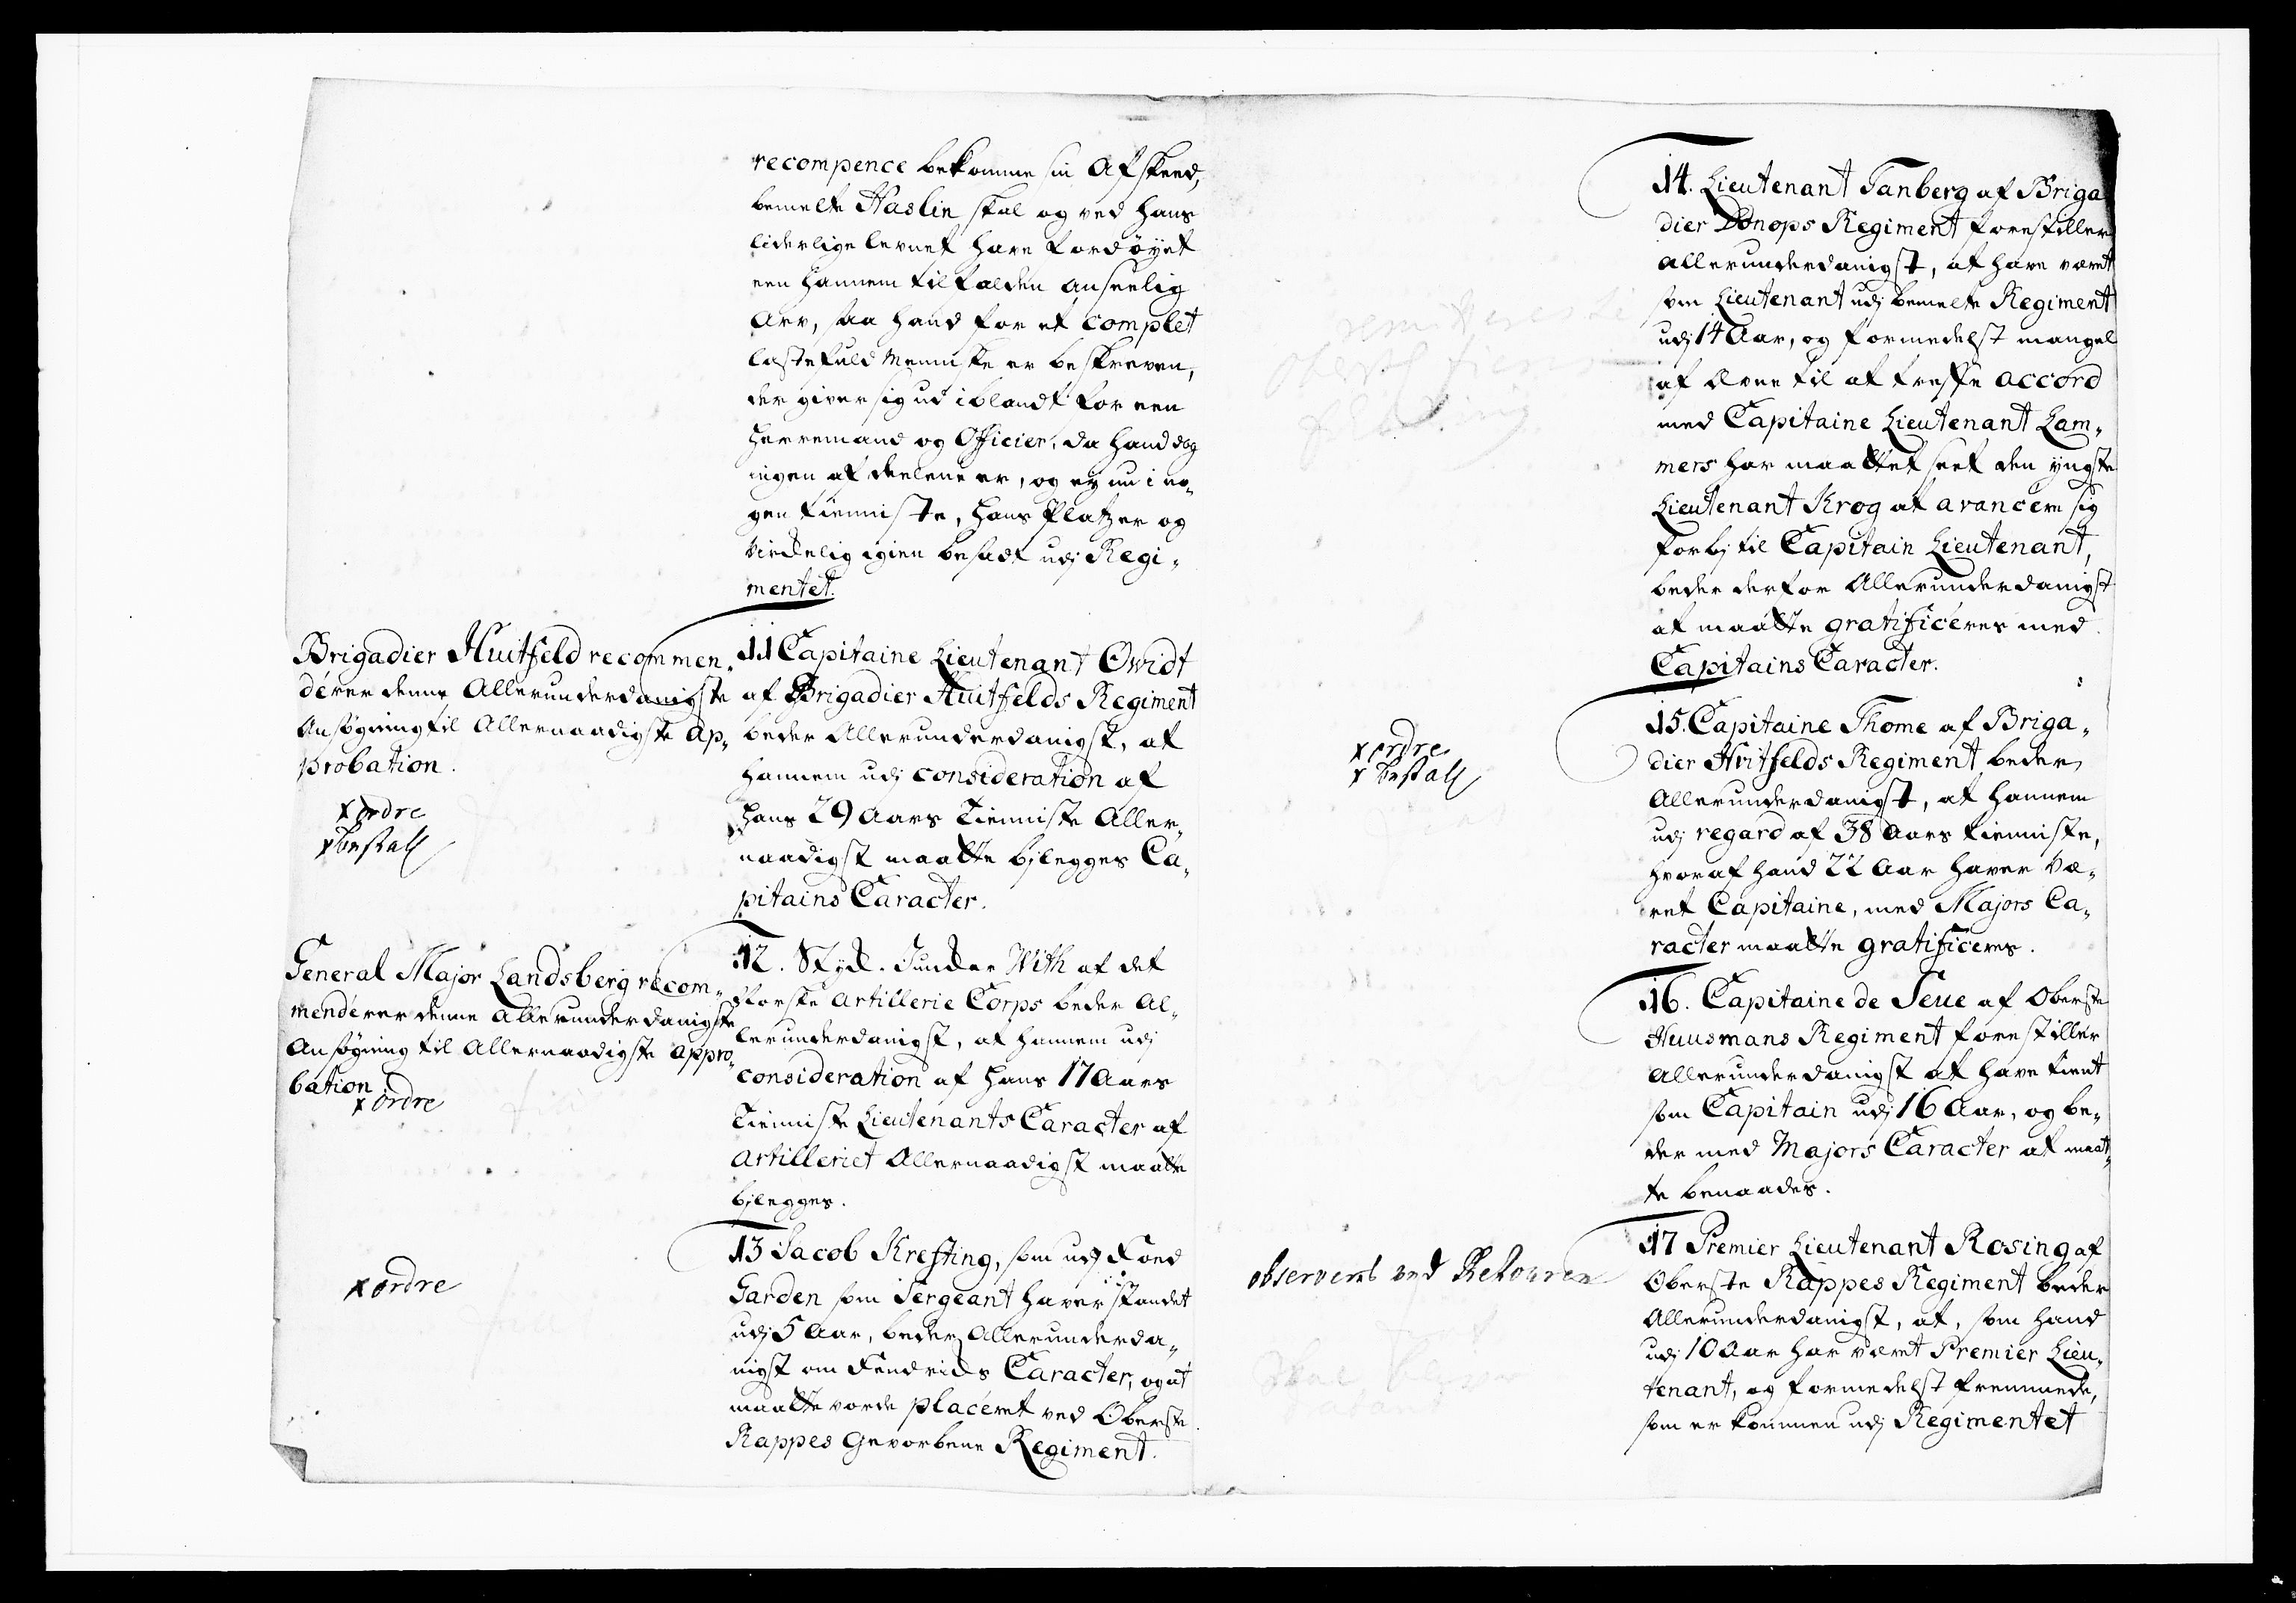 recompence bekomme sin Afskeed,
bemelte Haslin skal og ved hans
liderlige levnet have fordøyet
een hannem tilfalden anseelig
Arv, saa hand for et complet
lastefuld Menniske er beskreven,
der giver sig ud iblandt for een
Herremand og Officier, da hand dog
ingen af deelene er, og ey nu i no,
gen tienniste, hans Platz er og
virkelig igien besadt udj Regi,
mentet.
Brigadier Huitfeld recommen,
dérer denne Allerunderdanigste
Ansøgning til Allernaadigste Ap,
probation.
x ordre
x bestall
11 Capitaine Lieutenant Owidt
af Brigadier Huitfelds Regiment
beder Allerunderdanigst, at
hannem udj consideration af
hans 29 Aars Tienniste Aller,
naadigst maatte bjlegges Ca,
pitains Caracter.
General Major Landsberg recom,
mendérer denne Allerunderdanigste
Ansøgning til Allernaadigste Appro,
bation
x ordre
12. Styck Juncker With af det
Norske Artillerie Corps beder Al,
lerunderdanigst, at hannem udj
consideration af hans 17 Aars
Tienniste Lieutenants Caracter af
Artilleriet Allernaadigst maatte
bjlegges.
x ordre
13 Jacob Kresting, som udj Foed
Garden som Sergeant haver standet
udj 5 Aar, beder Allerunderda,
nigst om Fendrichs Caracter, og at
maatte vorde placéret ved Oberste
Rappes Gevorbene Regiment.
14. Lieutenant Tanberg af Briga
dier Donops Regiment forestiller
Allerunderdanigst, at have været
som Lieutenant udj bemelte Regiment
udj 14 Aar, og formedelst mangel
af Evne til at treffe accord
med Capitaine Lieutenant Lam,
mers har maattet seet den yngste
Lieutenant Krog at avancere sig
forbj til Capitain Lieutenant,
beder derfor Allerunderdanigst
at maatte gratificéres med
Capitains Caracter.
x ordre
x bestall
15. Capitaine Thome af Briga,
dier Huitfelds Regiment beder
Allerunderdanigst, at hannem
udj regard af 38 Aars tienniste,
hvoraf hand 22 Aar haver væ,
ret Capitaine, med Majors Ca,
racter maatte gratificeres.
16. Capitaine de Seue af Oberste
Huusmans Regiment forestiller
Allerunderdanigst at have tient
som Capitain udj 16 Aar, og be,
der med Majors Caracter at maat,
te benaades.
observeres ved Retouren
17 Premier Lieutenant Rosing af
Oberste Rappes Regiment beder
Allerunderdanigst, at, som hand
udj 10 Aar har været Premier Lieu,
tenant, og formedelst fremmede,
som er kommen udj Regimentet